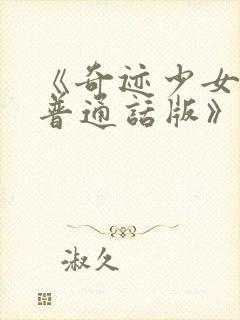 《奇迹少女
普通話版》
淑久